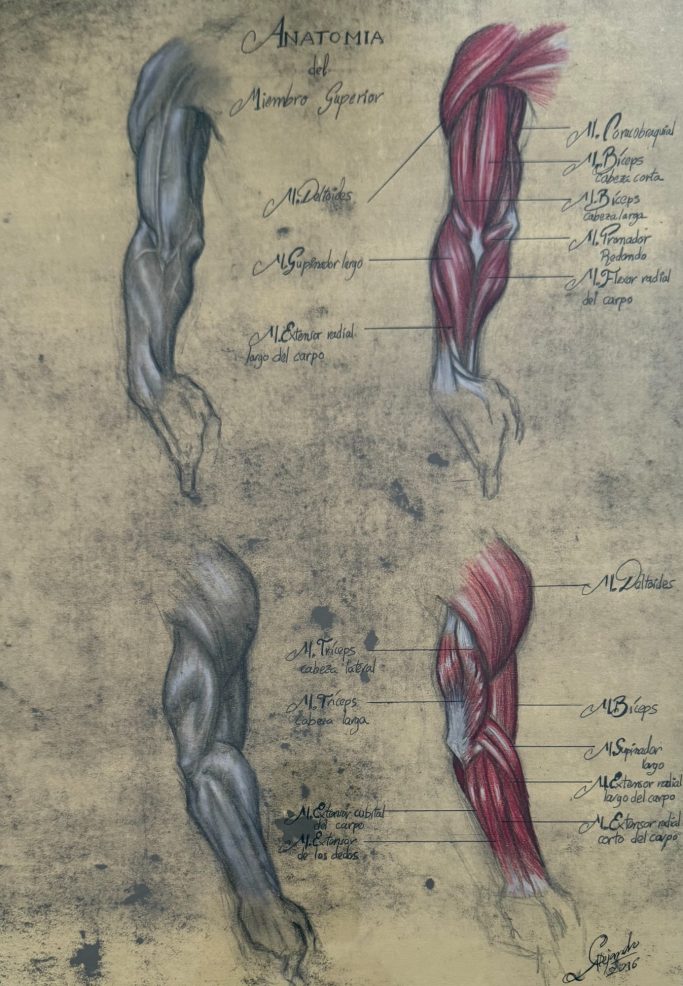 ANATOMIA
del
Miembro Superior
M. Coracobraquial
M. Bíceps
cabeza corta
M. Bíceps
cabeza larga
M. Deltoides
M. Pronador
Redondo
M. Supinador largo
M. Flexor radial
del carpo
M. Extensor radial
largo del carpo
M. Deltoides
M. Tríceps
cabeza lateral
M. Tríceps
cabeza larga
M. Bíceps
M. Supinador
largo
M. Extensor radial
largo del carpo
M. Extensor cubital
del carpo
M. Extensor radial
corto del carpo
M. Extensor
de los dedos
2016